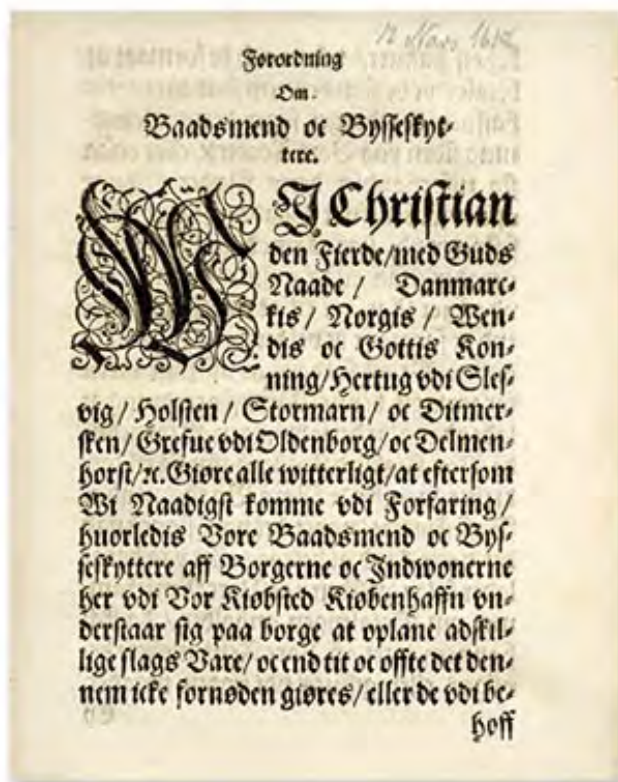 12 Mars 1618
Forordning
Om.
Baadsmend oc Bysseskyt-
tere.
WJ Christian
den Fierde/med Guds
Naade / Danmarc-
kis / Norgis / Wen-
dis oc Gottis Kon-
ning/Hertug vdi Sles-
vig / Holsten / Stormarn / oc Ditmer-
sken / Grefue vdi Oldenborg/oc Delmen-
horst/ꝛc. Giøre alle witterligt/at eftersom
Wi Naadigst komme vdi Forfaring /
huorledis Vore Baadsmend oc Bys-
seskyttere aff Borgerne oc Jndwonerne
her vdi Vor Kiøbsted Kiøbenhaffn vn-
derstaar sig paa borge at oplane adskil-
lige slags Vare / oc end tit oc offte det den-
nem icke fornøden giøres / eller de vdi be-
hoff